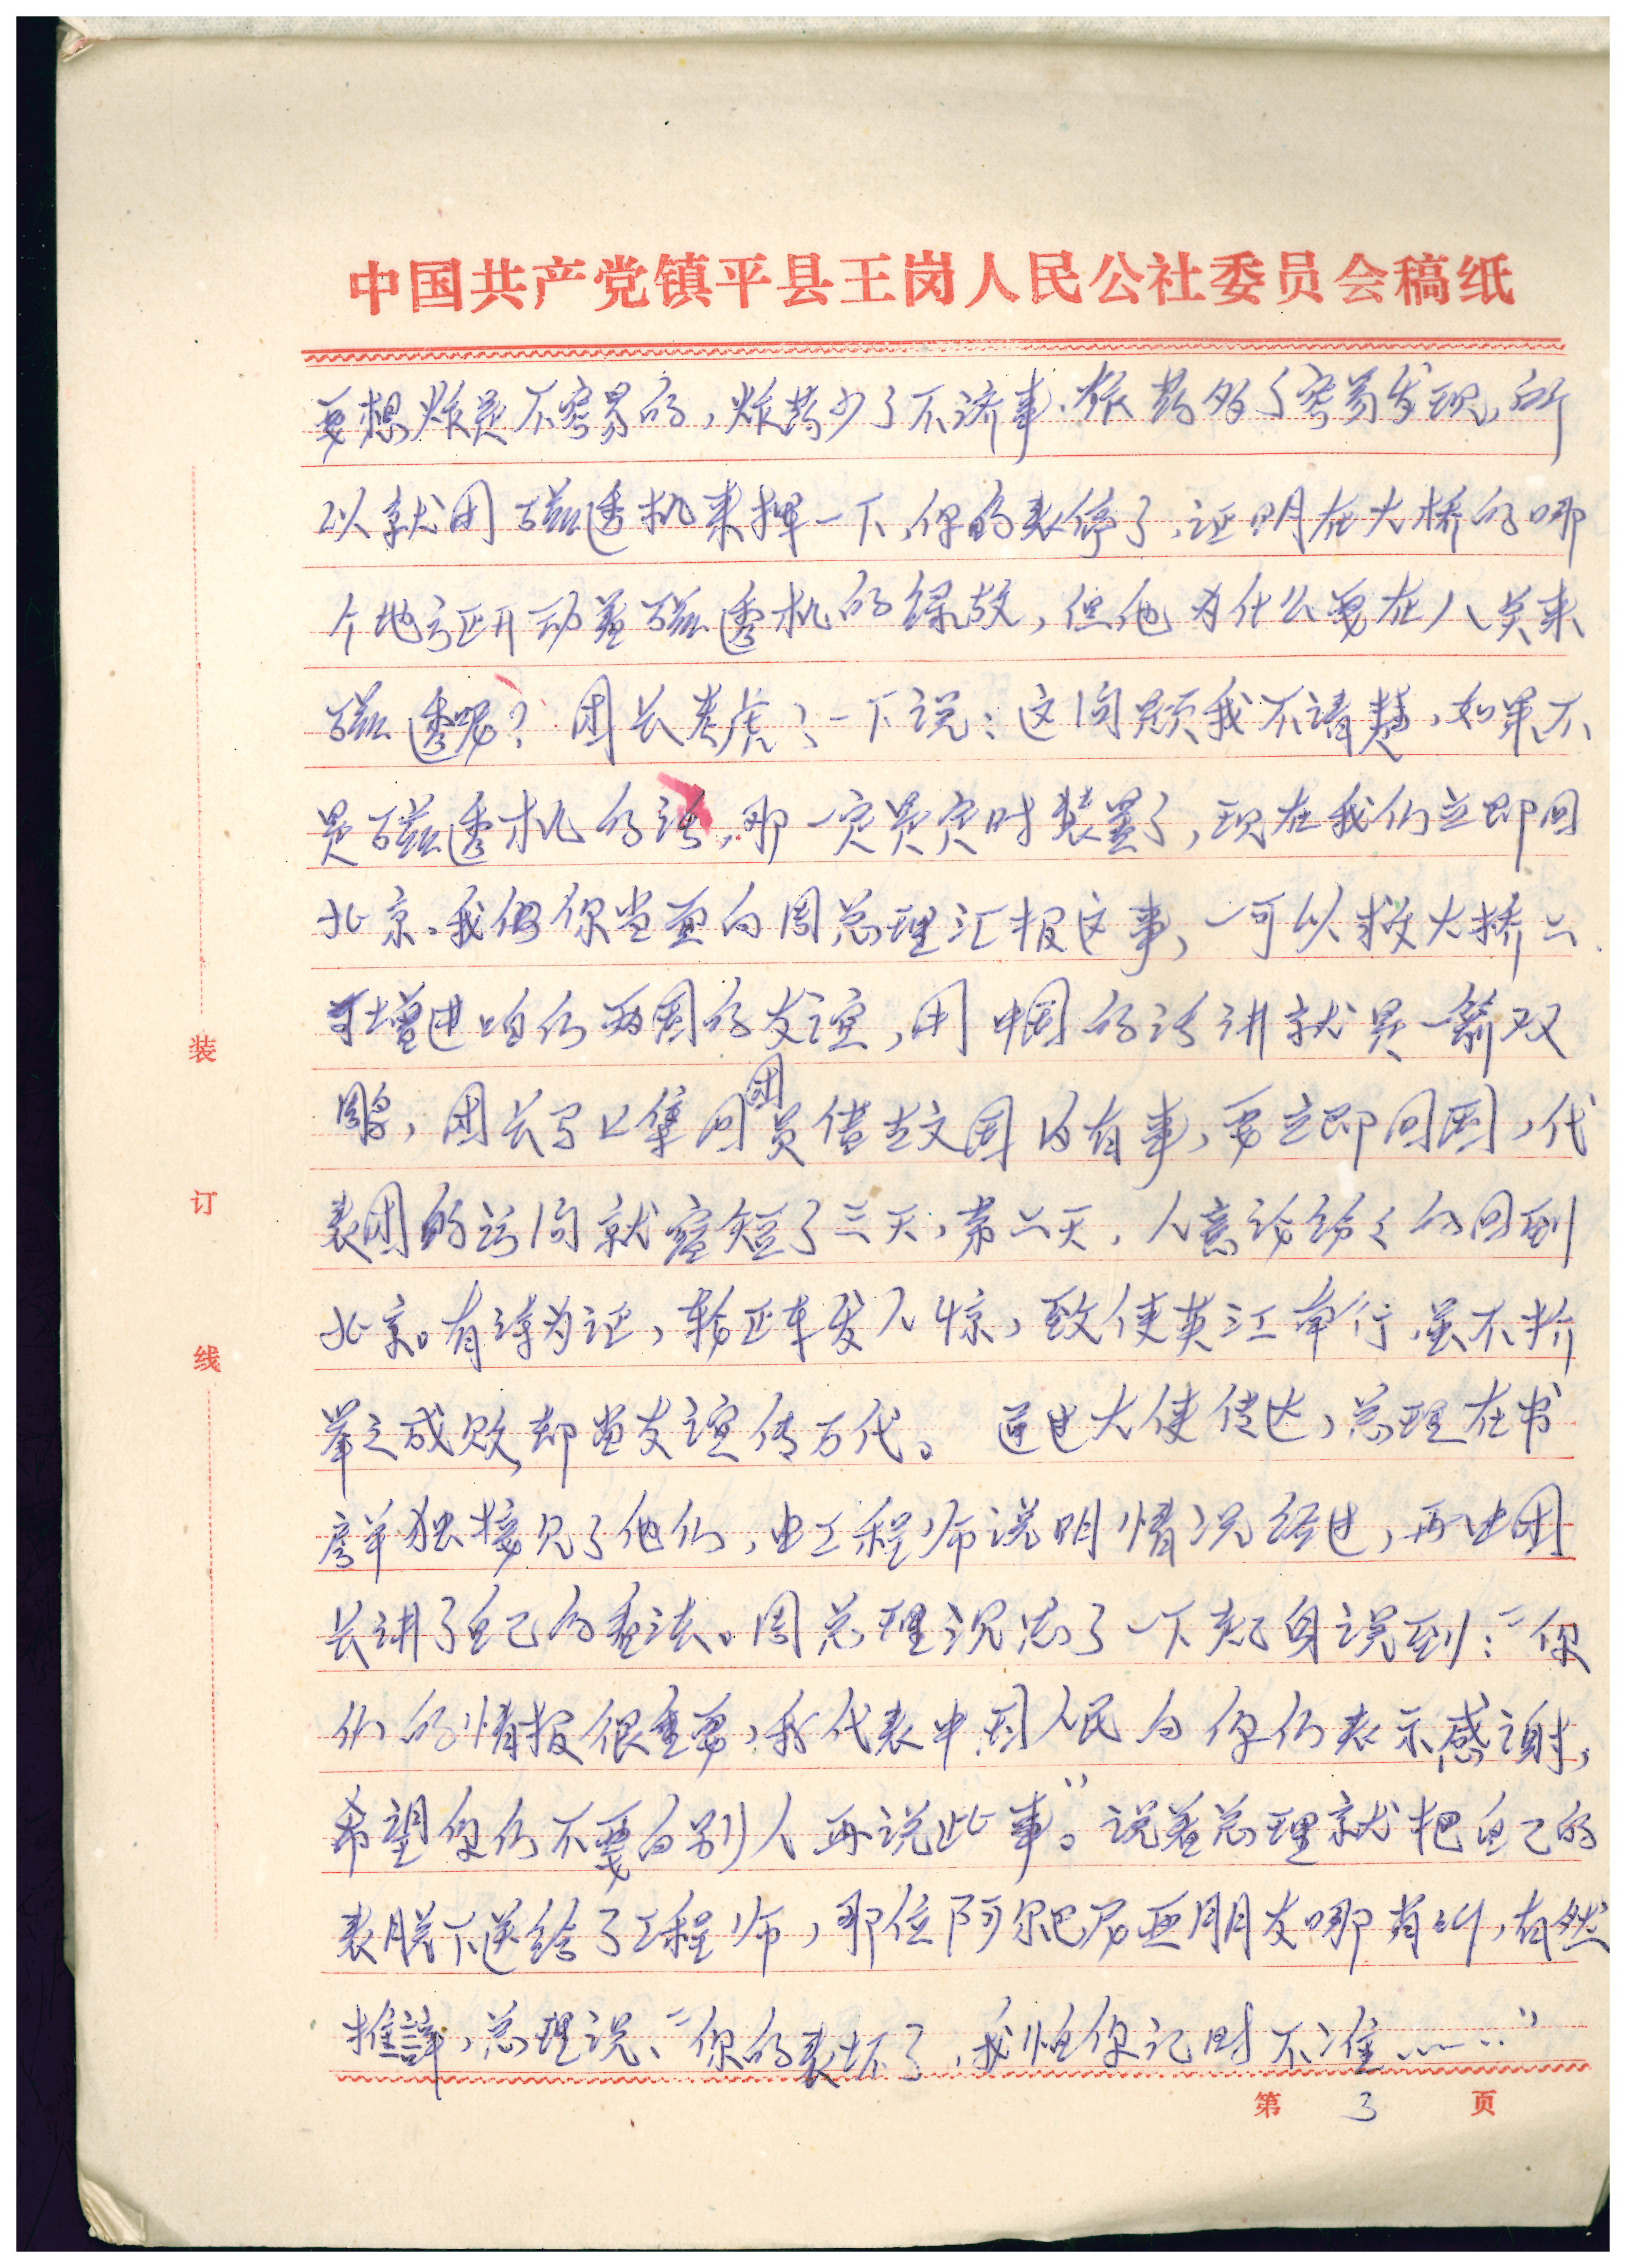 中国共产党镇平县王岗人民公社委员会稿纸
要想炸是不容易的，炸药少了不济事，炸药多了容易发现，所
以就用磁透机来撣一下，你的表停了，证明在大桥的哪
个地方正开动着磁透机的缘故，但他为什么要在八点来
磁透呢？团长考虑了一下说：这问题我不清楚，如果不
是磁透机的话，那一定是定时装置了，现在我们立即回
北京，我和你当面向周总理汇报这事，一可以救大桥二
可增进咱们两国的友谊，用中国的话讲就是一箭双
雕，团长马上集回团员借故国内有事，要立即回国，代
表团的访问就缩短了三天，第二天，人意纷纷々的回到
北京。有诗为证，轿正车发人惊，致使英江奔行，虽不析
举之成败，却当友谊传万代。 通过大使传达，总理在书
房单独接见了他们，由工程师说明情况经过，再由团
长讲了自己的看法。周总理沉思了一下起身说到：“你
们的情报很重要，我代表中国人民向你们表示感谢，
希望你们不要向别人再说此事”。说着总理就把自己的
表脱下送给了工程师，那位阿尔巴尼亚朋友哪肯
推辞，总理说、“你的表坏了，我怕你记时不准……”
第 3 页
装
订
线